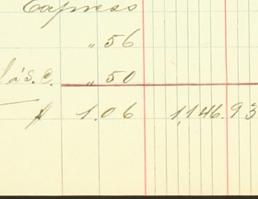 Express
" 56
" 50
$ 1.06 1,146.93